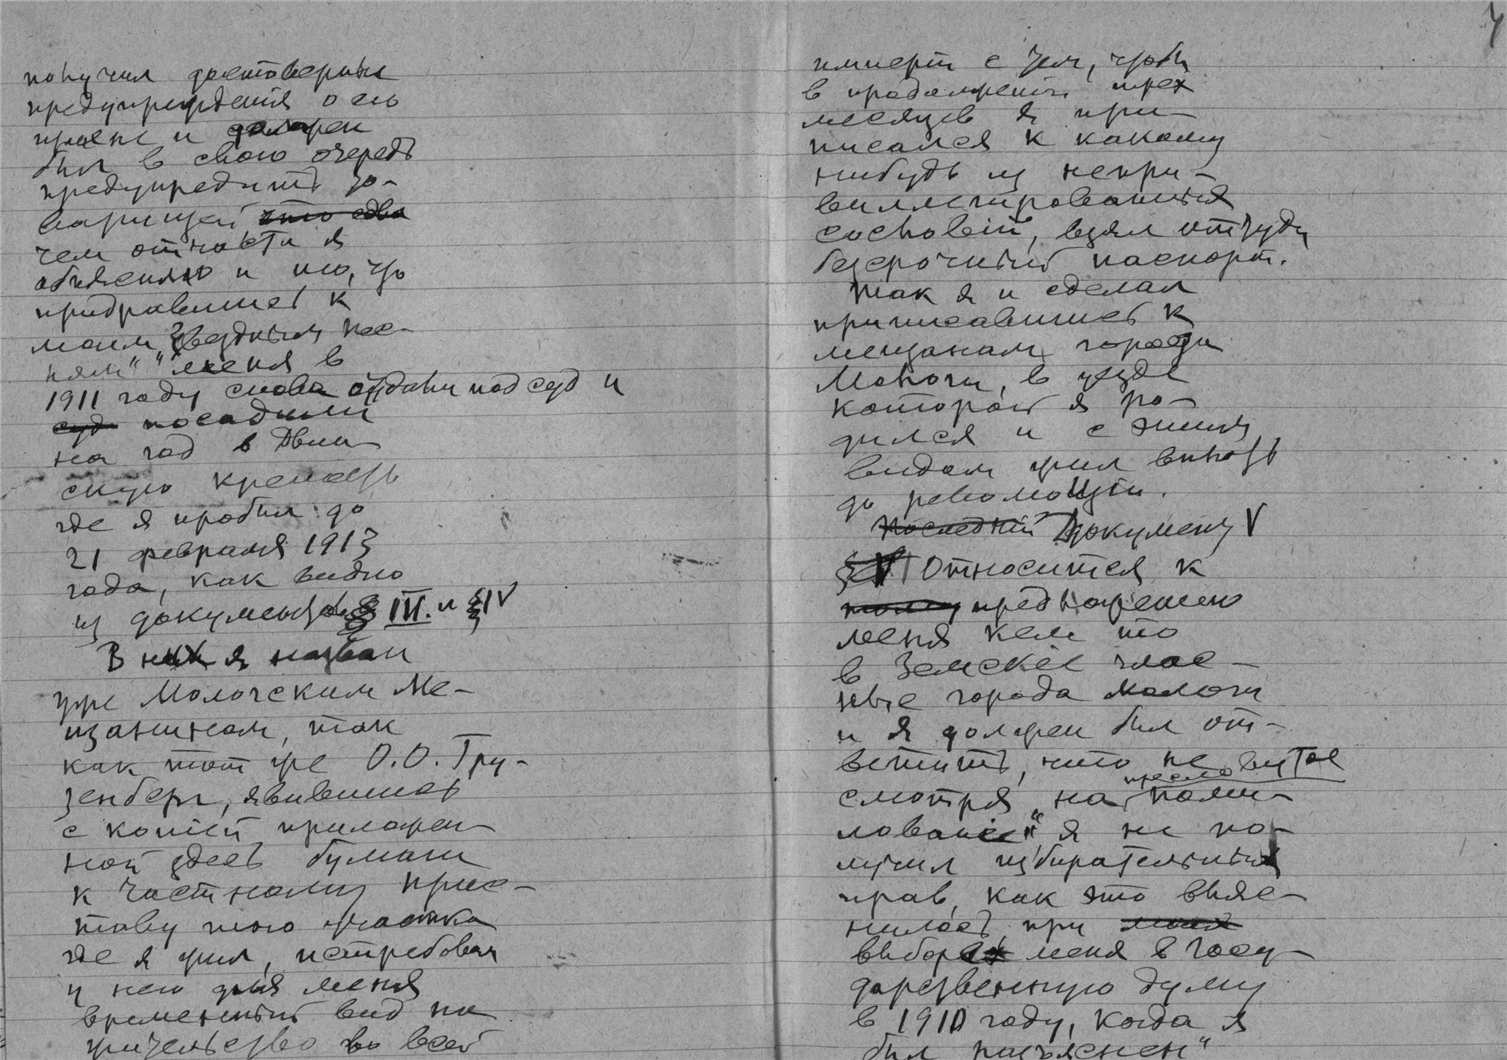 получил достоверныя
предупреждения о ея
и должен
был в свою очередь
предупредить то-
варищей что едва
чем отчасти я
объясняю и то, что
придравшись к
моим "Звездным пес-
ням" меня в
1911 году снова отдали под суд и
суд посадили
на год в Двин-
скую крепость
где я пробыл до
21 февраля 1913
года, как видно
из документов § III. и § IV
В них я назван
уже Мологским Ме-
щанином, так
как тот же О.О. Гру-
зенберг, явившись
с копией приложен-
ной здесь бумаги
к частному прис-
таву того участка
где я жил, истребовал
у него для меня
временный вид на
жительство во всей
империи с тем, чтобы
в продолжении трех
месяцев я при-
писался к какому
нибудь из непри-
виллегированных
сословий, взял оттуда
безсрочный паспорт.
Так я и сделал
приписавшись к
мещанам города
Мологи, в уезде
которой я ро-
дился и с этим
видом жил вплоть
до революции.
Последний Документ V
§ V относится к
предложению
меня кем то
в Земские глас-
ные города Мологи
и я должен был от-
ветить, что не
смотря "на
помилование" я не по-
лучил избирательных
прав, как это выяс-
нилось при
выборах меня в Госу-
дарственную думу
в 1910 году, когда я
был разъяснен"